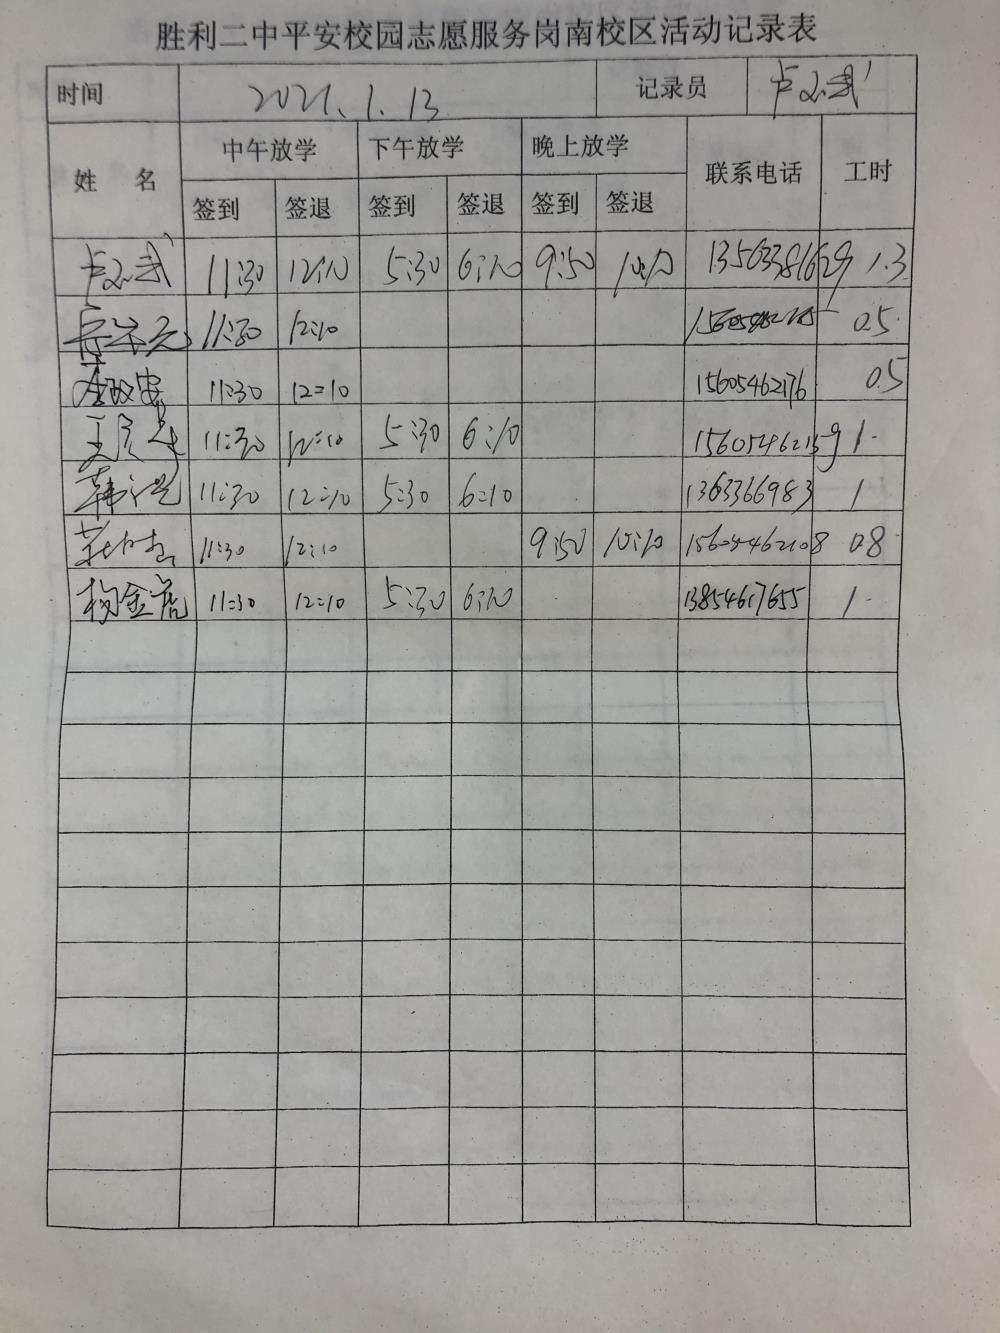 胜利二中平安校园志愿服务岗南校区活动记录表
时间 2021.1.13 记录员
姓 名 中午放学 下午放学 晚上放学 联系电话 工时
签到 签退 签到 签退 签到 签退
11:30 12:10 5:30 6:10 9:50 10:10 13563381629 1.3
11:30 12:10 0.5
11:30 12:10 15605462176 0.5
11:30 12:10 5:30 6:10 15605462159 1.
11:30 12:10 5:30 6:10 1363366983 1
11:30 12:10 9:50 10:10 15605462108 0.8
杨金虎 11:30 12:10 5:30 6:10 13854617655 1.